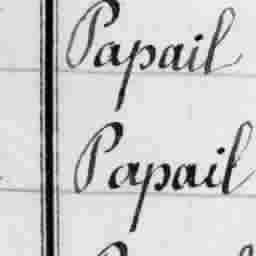 Papail
Papail